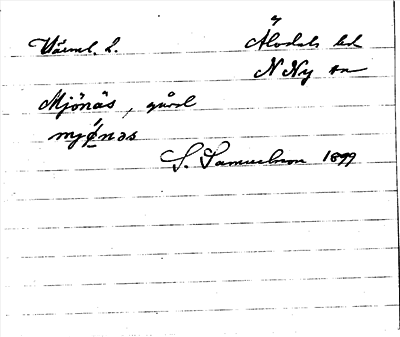 Värml. l. Älvdals hd
N Ny sn
Mjönäs, gård
mjønəs
S. Samuelsson 1899